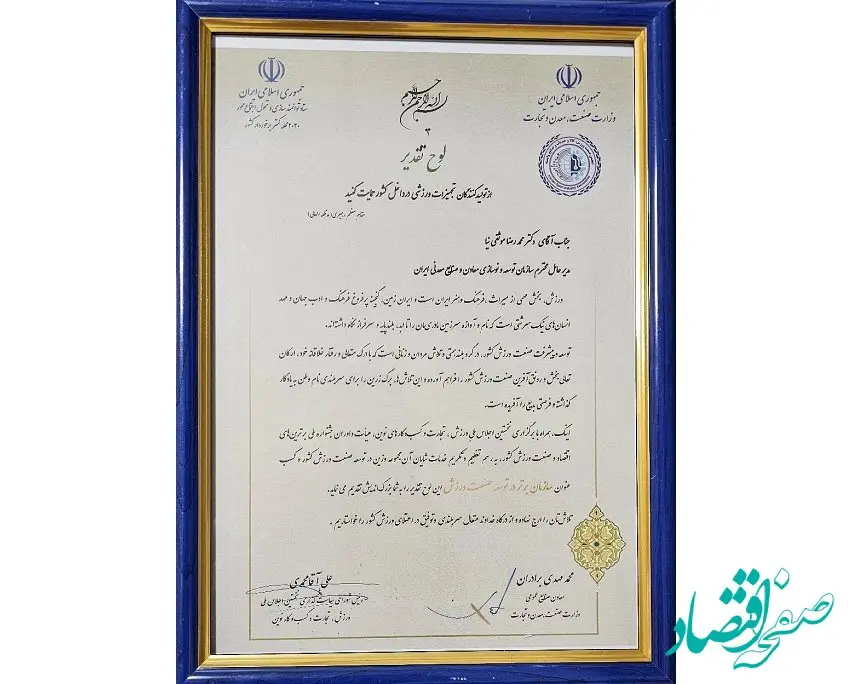 جمهوری اسلامی ایران
وزارت صنعت، معدن و تجارت
بسم الله الرحمن الرحیم
جمهوری اسلامی ایران
ستاد توانمندسازی و تحول اجتماع محور
۲۰۲۰ محله کمتر برخوردار کشور
لوح تقدیر
از تولیدکنندگان تجهیزات ورزشی در داخل کشور حمایت کنید
مقام معظم رهبری (مدظله العالی)
جناب آقای دکتر محمدرضا موثقی نیا
مدیرعامل محترم سازمان توسعه و نوسازی معادن و صنایع معدنی ایران
ورزش، بخش مهمی از میراث، فرهنگ و هنر ایران است و ایران زمین، گنجینه پر فروغ فرهنگ و ادب جهان و مهد
انسان‌های نیک سرشتی است که نام و آوازه سرزمین مادری‌مان را تا ابد، بلندپایه و سرفراز نگاه داشته‌اند.
توسعه و پیشرفت صنعت ورزش کشور، در گرو بلند همتی و تلاش مردان و زنانی است که با درک متعالی و رفتار خلاقانه خود، ارکان
تعالی بخش و رونق آفرین صنعت ورزش کشور را فراهم آورده و این تلاش‌ها، برگ زرین را برای سربلندی نام وطن به یادگار
گذاشته و فرصتی بدیع را آفریده است.
اینک، همراه با برگزاری نخستین اجلاس ملی ورزش، تجارت و کسب و کارهای نوین، هیئت داوران جشنواره ملی برترین‌های
اقتصاد و صنعت ورزش کشور، به رسم تعظیم و تکریم خدمات شایان آن مجموعه وزین در توسعه صنعت ورزش کشور و کسب
عنوان سازمان برتر در توسعه صنعت ورزش این لوح تقدیر را به شما بزرگ اندیش تقدیم می نماید.
تلاش‌تان را ارج نهاده و از درگاه خداوند متعال سربلندی و توفیق در اعتلای ورزش کشور را خواستاریم.
محمد مهدی برادران
معاون صنایع عمومی
وزارت صنعت، معدن و تجارت
علی آقامحمدی
رییس شورای سیاست گذاری نخستین اجلاس ملی
ورزش، تجارت و کسب و کار نوین
صفحه اقتصاد